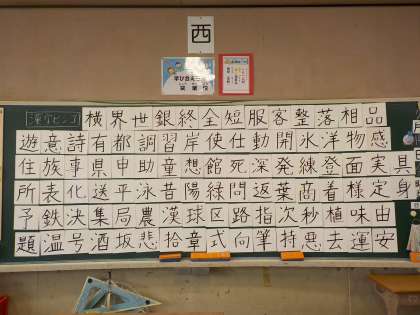 西
学び合える
漢字ビンゴ
横界世銀終全短服客整落相品
遊意詩有都調習岸使仕動開氷洋物感
住族事県申助童想館死深発練登面実具
所表化送平泳昔陽緑問返葉商着様定身
予鉄決集局農漢球区路指次秒植味由
題温号酒坂悲拾章式向筆持悪去運安